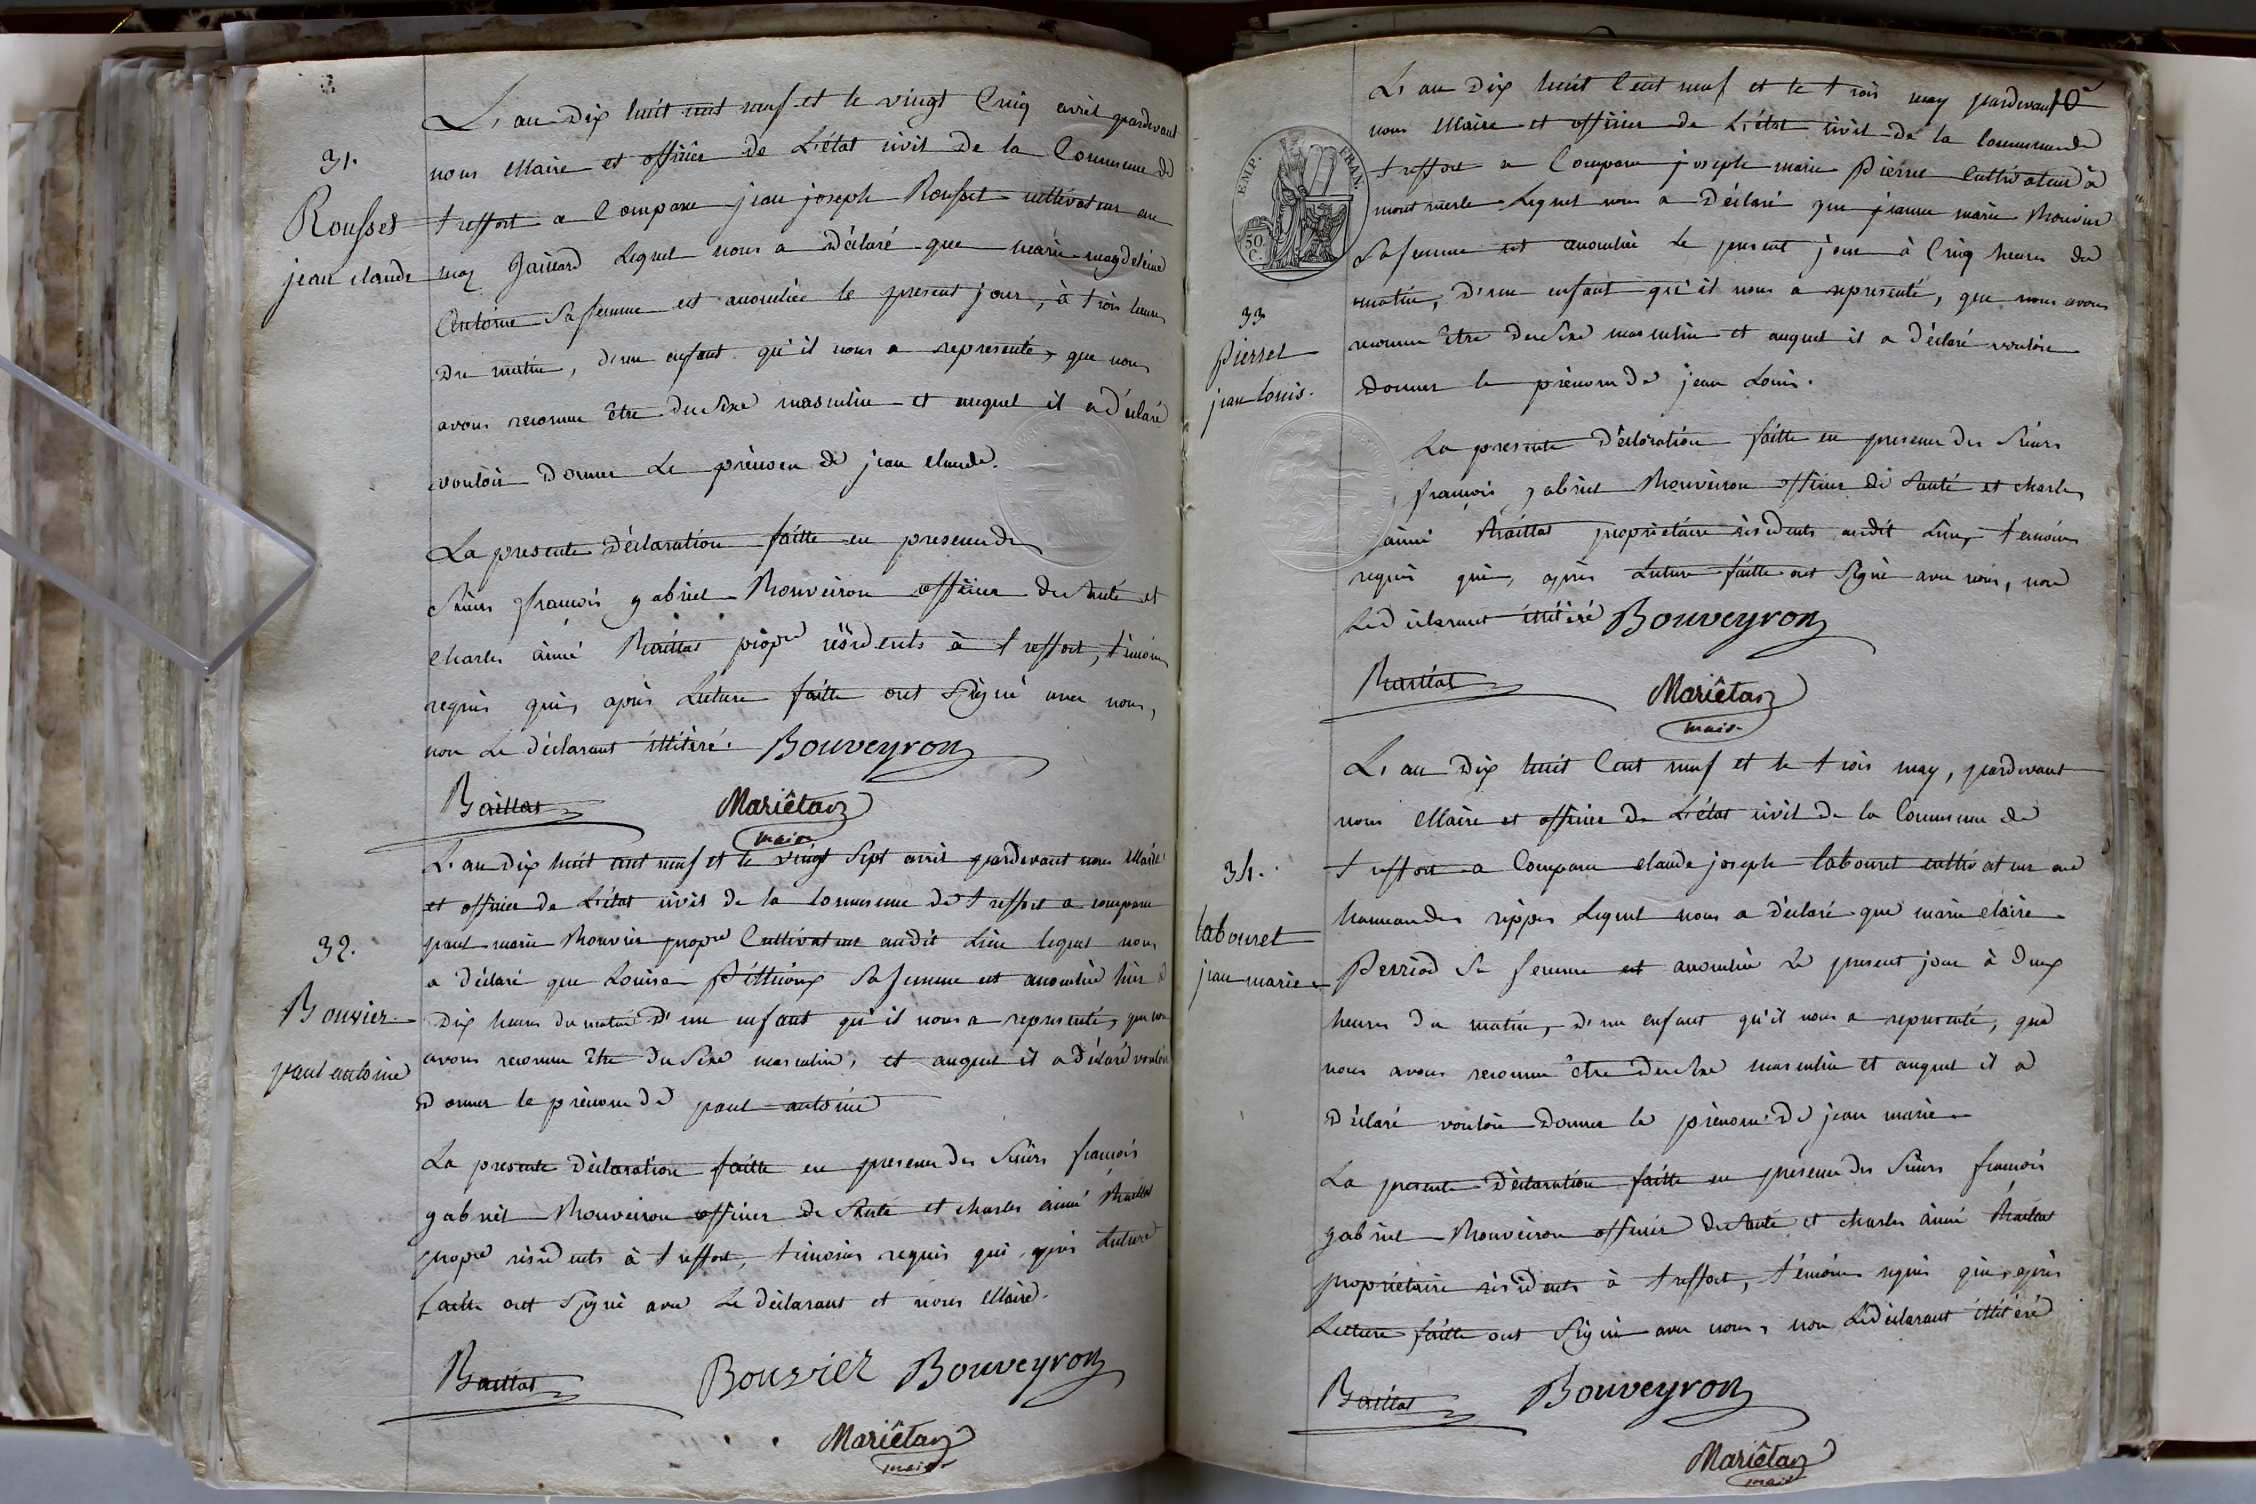 31.
Rousset
jean claude
L'an Dix huit cent neuf et le vingt Cinq avril pardevant
nous Maire et officier de L'état civil de la Commune de
treffort a Comparu jean joseph Rousset cultivateur au
Lequel nous a Déclaré que marie magdeleine
Antoine Sa femme est accouchée le present jour, à trois heures
Du matin, d'un enfant qu'il nous a representé, que nous
avons reconnu être du Sexe masculin et auquel il a déclaré
vouloir Donner Le prénom de jean claude.
La presente Déclaration faitte en presence des
Sieurs françois gabriel Bouveiron officier de Santé et
charles aimé Baillat propre résidents à treffort, témoins
requis qui, après Lecture faitte ont Signé avec nous,
non Le déclarant illitéré. Bouveyron
Baillat Mariétan
maire
32.
Bouvier
paul antoine
L'an Dix huit cent neuf et le vingt Sept avril pardevant nous Maire
et officier de L'état civil de la Commune de treffort a comparu
paul marie Bouvier propre Cultivateur audit Lieu lequel nous
a déclaré que Louise Sa femme est accouchée hier à
Dix heures du matin D'un enfant qu'il nous a representé, que nous
avons reconnu être du Sexe masculin, et auquel il a Déclaré vouloir
Donner le prénom de paul antoine
La presente Déclaration faitte en presence des Sieurs françois
gabriel Bouveiron officier de Santé et charles aimé Baillat
propre résidents à treffort, témoins requis qui, après Lecture
faitte ont Signé avec Le déclarant et nous Maire.
Baillat Bouvier Bouveyron
Mariétan
maire
EMP. FRAN.
50
C.
33
Pierret
jean louis.
L'an Dix huit Cent neuf et le trois may pardevant
nous Maire et officier de L'état civil de la Commune de
treffort a Comparu joseph marie Pierret Cultivateur à
montmerle Lequel nous a Déclaré que jeanne marie Bouvier
Sa femme est accouchée Le present jour à Cinq heures du
matin, D'un enfant qu'il nous a representé, que nous avons
reconnu être du Sexe masculin et auquel il a déclaré vouloir
Donner le prénom de jean Louis.
La presente Déclaration faitte en presence des Sieurs
françois gabriel Bouveiron officier de Santé et charles
aimé Baillat propriétaire résidents audit Lieu, témoins
requis qui, après Lecture faitte ont Signé avec nous, non
Le déclarant illitéré Bouveyron
Baillat Mariétan
maire
34.
labouret
jean marie
L'an Dix huit Cent neuf et le trois may, pardevant
nous Maire et officier de L'état civil de la Commune de
treffort a Comparu claude joseph labouret cultivateur au
hameau des rippes Lequel nous a déclaré que marie claire
Perriod Sa femme est accouchée Le present jour à deux
heures du matin, D'un enfant qu'il nous a representé, que
nous avons reconnu être du Sexe masculin et auquel il a
Déclaré vouloir Donner le prénom De jean marie
La presente Déclaration faitte en presence des Sieurs françois
gabriel Bouveiron officier de Santé et charles aimé Baillat
propriétaire résidents à treffort, témoins requis qui, après
Lecture faitte ont Signé avec nous, non Le déclarant illitéré
Baillat Bouveyron
Mariétan
maire